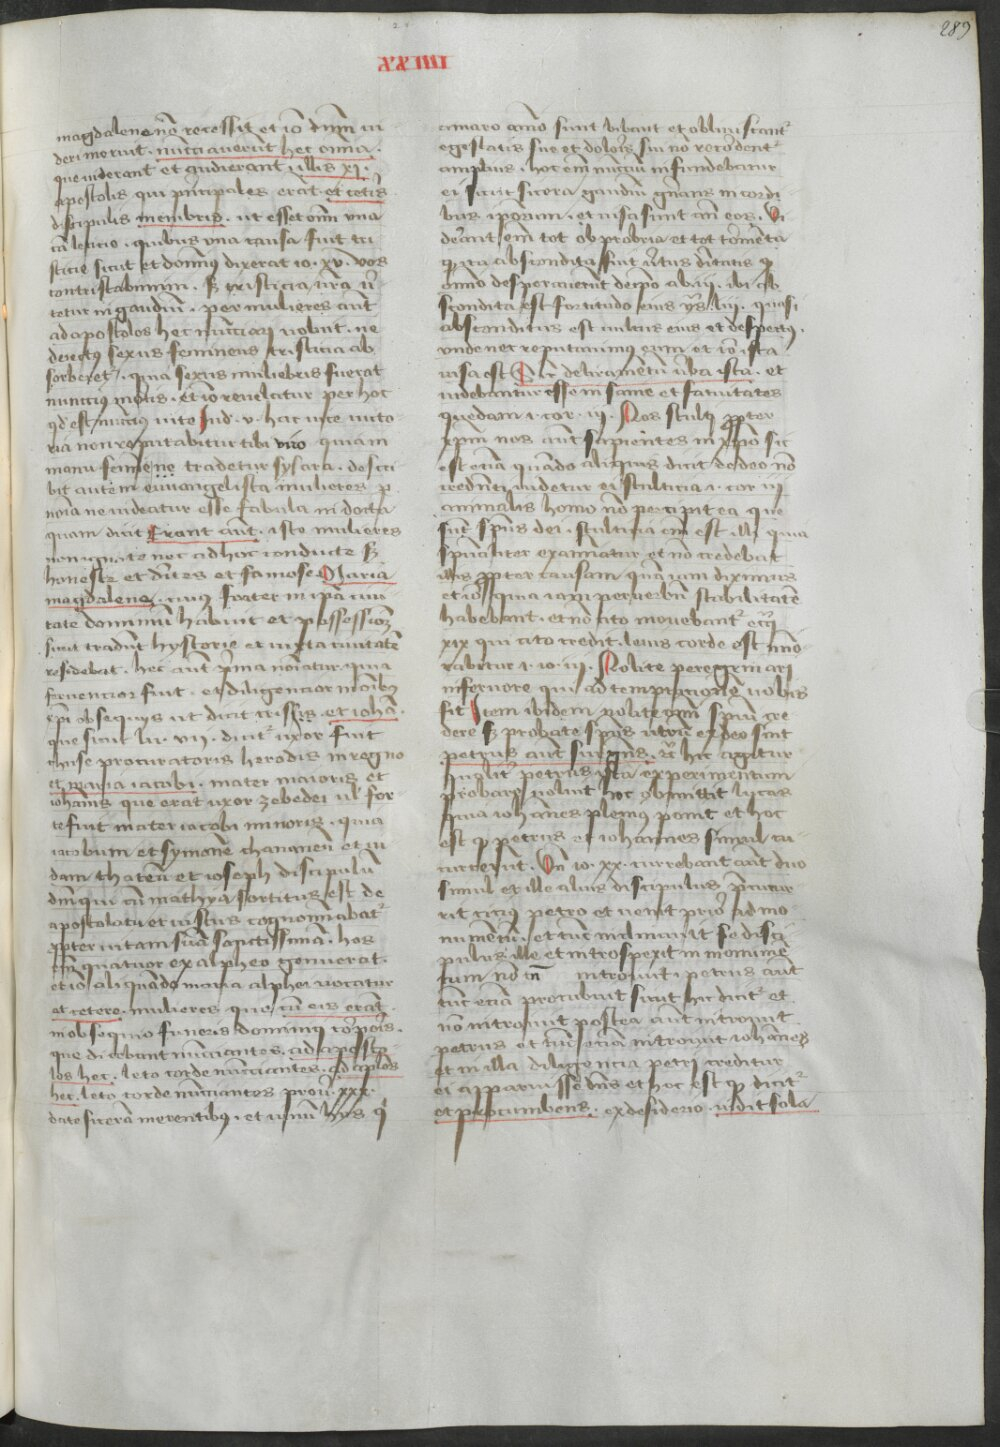 289
XXIIII
magdalene nō recessit et iō dn̄m ui
deri meruit. nunciauerūt hec omnia.
que uiderant et audierant. illis xi.
apostolis qui pn̄cipales erāt et cetīs
discipulis membris. ut esset om̄ vna
cā leticie. quibus vna causa fuit tri
sticie sicut et domin⁹ dixerat io. xv. vos
contristabimini. sꝫ tristicia ur̄a u̓
tetur in gaudiū. per mulieres aūt
ad apostolos hec nunciari uoluit. ne
deiectus sexus femineus tristicia ab
sorberet². quia sexus muliebris fuerat
nuncius mortis. et iō reuelatur per hoc
qd̓ est nunci⁹ uite Iud. v. hac uice uicto
ria non reputabitur tibi viro quia in
manu femīene tradetur sysara. descri
bit autem euuangelista mulieres p̄
noīa ne uideatur esse fabula indocta
quam dicit Erant aūt. iste mulieres
non ignote nec ad hoc conducte sꝫ
honeste et diuites et famose Maria
magdalene. cui⁹ frater in ipā ciui
tate dominiū habuit et possessionē
sicut tradūt hystorie et iuxta ciuitatē
residebat. hec aūt pͥma noīatur. quia
feruencior fuit. et diligencior in oībꝫ
xp̄i obsequijs ut dicit crisos. et iohāa.
que sicut lu. VII. dicit² uxor fuit
chuse procuratoris herodis in regno
et maria iacobi. mater maioris et
iohānis que erat uxor zebedei ul̓ for
te fuit mater iacobi minoris. quia
iacobum et symonē chananeū et iu
dam thateū et ioseph discipulū
dn̄i qui cū mathya sortitus est de
apostolatu et iustus cognominabat²
ꝓpter uitam suā sanctissimā. hos
em̄ quatuor ex alpheo genuerat.
et iō aliquādo maria alphei uocatur
et cetere. mulieres que cū eis erāt.
in obsequio funeris dominici corpois.
que dicebant nunciantes. ad aposto
los hec. leto corde nunciantes. ad aplōs
hec. leto corde nunciantes prou. xxx.
date siceram merentibus. et uinū hijs qͥ
amaro aīo sunt bibant et obliuiscant²
egestatis sue et doloris sui nō recordent²
amplius. hoc em̄ nunciū infundebatur
ei sicut sicera gaudiū gn̄ans in cordi
bus ipsorum. et uisa sunt an̄ eos. Ui
derāt em̄ tot obprobria et tot tormēta
ꝙ ita abscondita fuit u̓tus diuitatis ꝙ
omīo desperauerūt de xp̄o abu. iij. ibi ab
scondita est fortitudo eius ys. liii. quasi
absconditus est uultus eius et despect⁹.
vnde nec reputauimus eum et iō ista
uisa est Sic deliramētū uerba ista. et
uidebantur esse insanie et fatuitates
quedam i. cor. iiij. Nos stulti ꝓpter
xpm̄ uos aūt sapientes in xp̄o sic
est etiā quādo aliquis dicit de deo nō
credenti uidetur ei stulticia i. cor. iij
animalis homo nō percipit ea que
sūt sp̄us dei. stulticia em̄ est illi quia
sp̄ualiter examinatur et nō credebāt
illis ꝓpter causam quā iam diximus
et iō quia iam per uerbū stabilitatē
habebant. et nō cito mouebant² eccī
xix qui cito credit. leuis corde est mīo
rabitur i. io. iij. Nolite peregrinari
in feruore qui ad temptationē uobis
fit Item ibidem nolite omī spiritui cre
dere sꝫ probate spūs utrū ex deo sint
petrus aūt surgēs. et̄ hic agitur
qualit² petrus ista experimentum
probare uoluit hoc obmittit lucas
quia iohānes plenius ponit et hoc
est ꝙ petrus et iohannes simul cu
currerunt. Un̄ io. xx. currebant aūt duo
simul et ille alius discipulus pͥcucur
rit citius petro et uenit prior ad mo
numētū. et tūc inclinauit se disci
pulus ille et introspexit in monumē
tum nō tn̄ introiuit petrus aūt
tūc etiā procubuit sicut hic dicit² et
nō introiuit postea aūt introiuit
petrus et tūc etiā introiuit iohānes
et in illa diligencia petri creditur
ei apparuisse dn̄s et hoc est ꝙ dicit²
et procumbens. ex desiderio. uidit sola